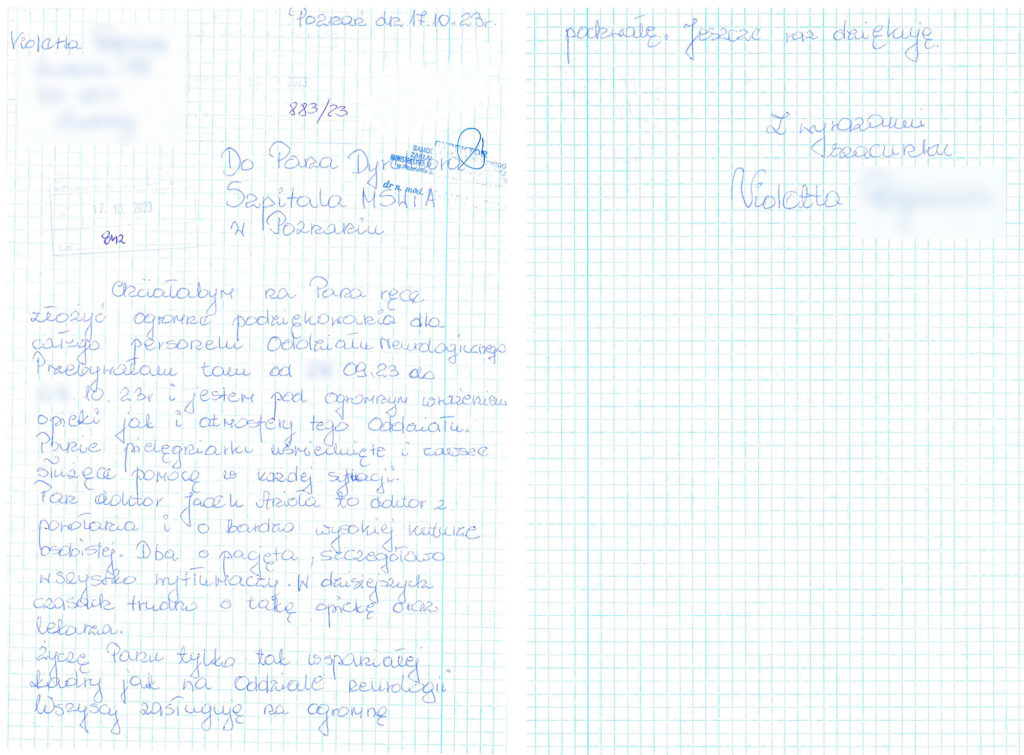 Poznań dn. 17.10.23r.
Violetta
2023
883/23
Do Pana Dyrektora
dr n. med.
Szpitala MSWiA
w Poznaniu
17. 10. 2023
842
Chciałabym na Pana ręce
złożyć ogromne podziękowania dla
całego personelu Oddziału Neurologicznego
Przebywałam tam od 09.23 do
.10.23r i jestem pod ogromnym wrażeniem
opieki jak i atmosfery tego Oddziału.
Panie pielęgniarki uśmiechnięte i zawsze
służące pomocą w każdej sytuacji.
Pan doktor Jacek Anioła to doktor z
powołania i o bardzo wysokiej kulturze
osobistej. Dba o pacjęta, szczegółowo
wszystko wytłumaczy. W dzisiejszych
czasach trudno o taką opiekę oraz
lekarza.
Życzę Panu tylko tak wspaniałej
kadry jak na Oddziale neurologii
Wszyscy zasługują na ogromną
pochwałę. Jeszcze raz dziękuję.
Z wyrazami
szacunku
Violetta